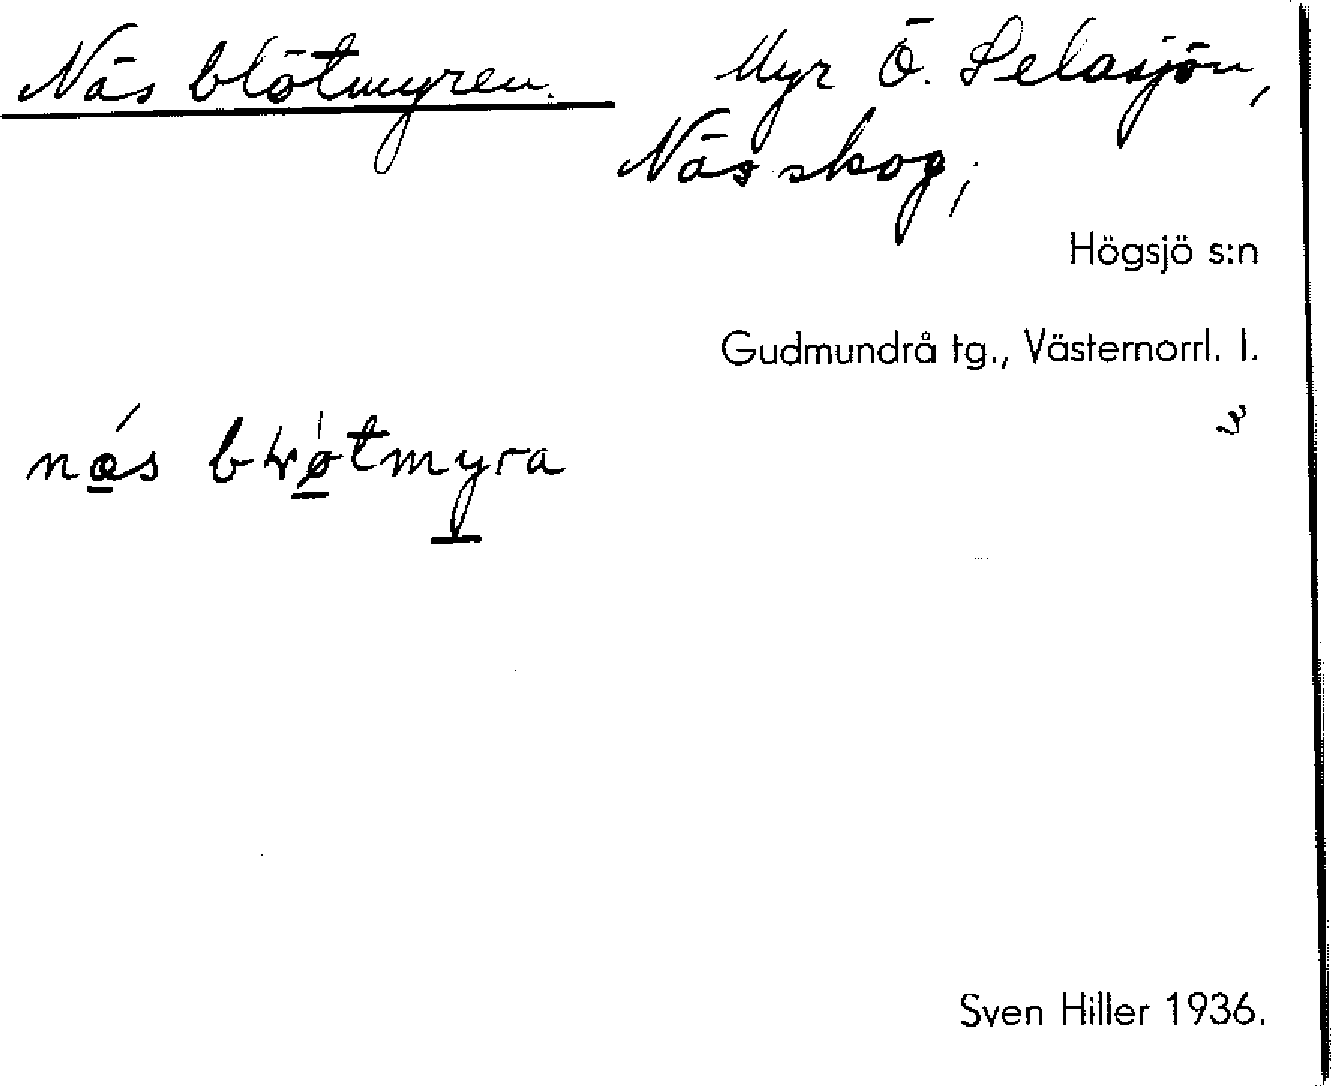 Näs blötmyren. Myr Ö. Selasjön,
Näs skog;
Högsjö s:n
Gudmundrå tg., Västernorrl. l.
næs bløtmyra
Sven Hiller 1936.